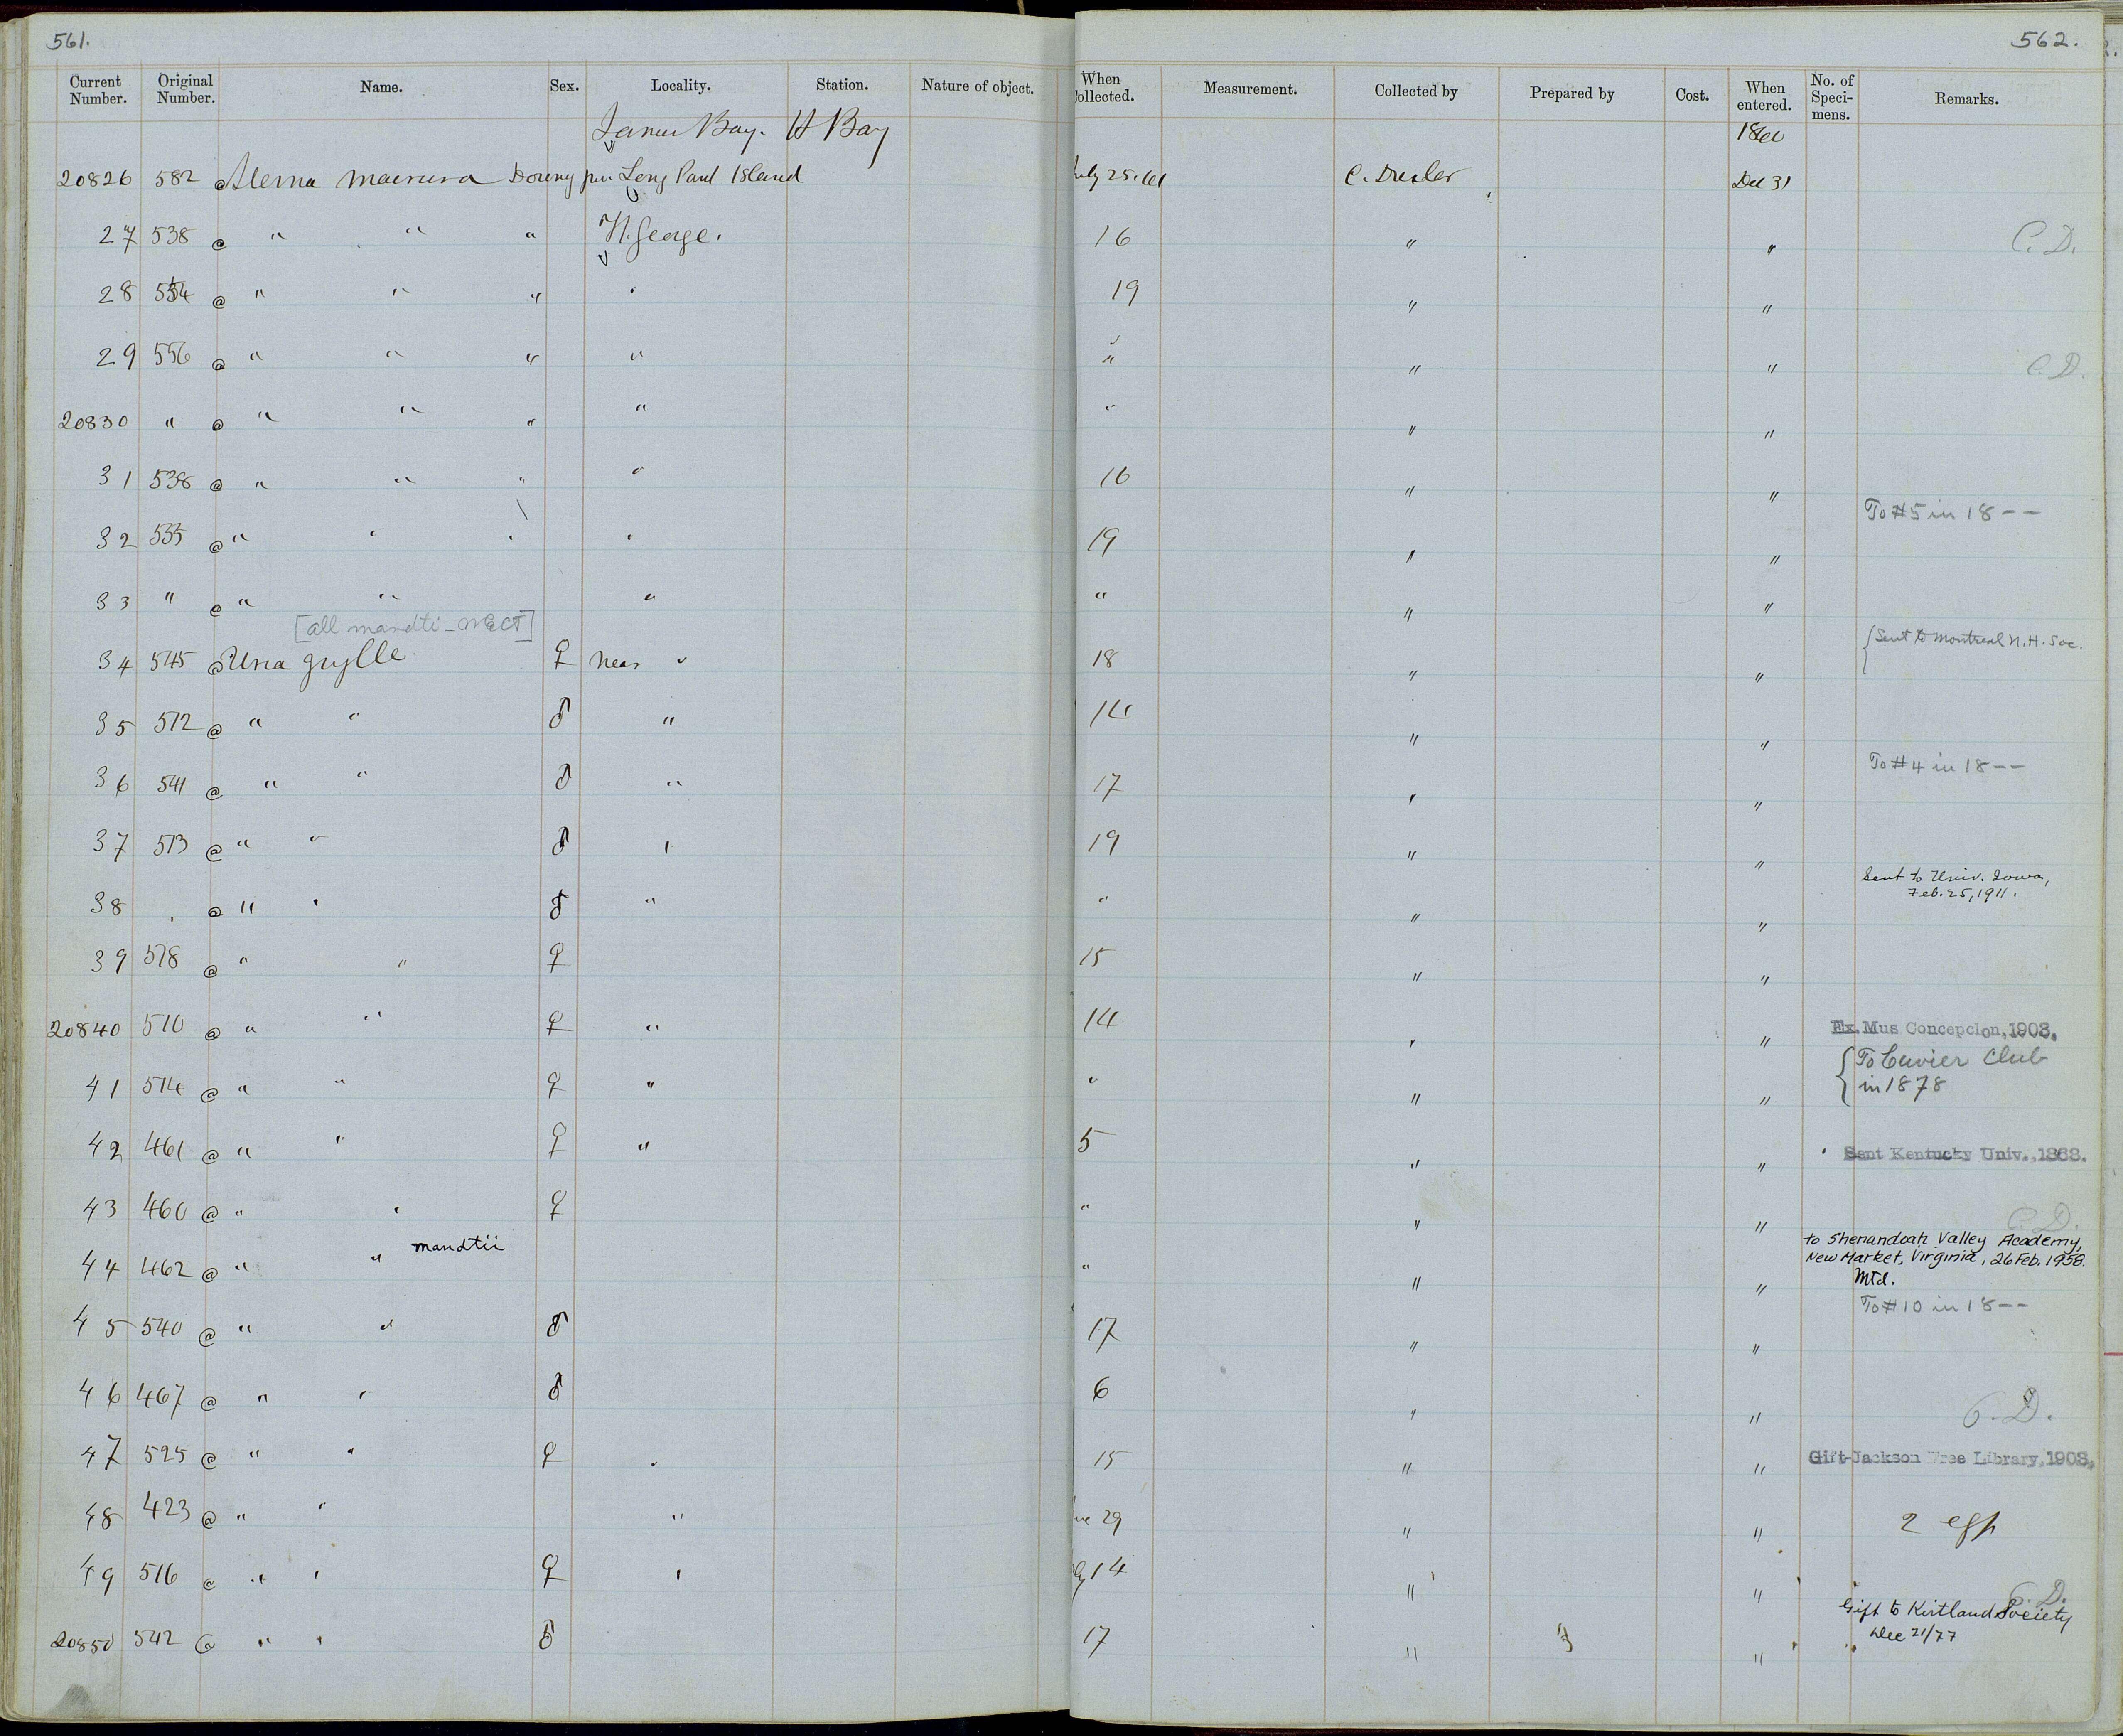 561.
562.
Current Number. Original Number. Name. Sex. Locality. Station. Nature of object. When Collected. Measurement. Collected by Prepared by Cost. When entered. No. of Speci-mens. Remarks.
James Bay. H Bay 1860
20826 582 @ Sterna macrura Downy Long Island July 25. C. Drexler Dec 31
27 538 @ " " " Ft. George. 16 " " C. D.
28 554 @ " " " " 19 " "
29 556 @ " " " " " " " C. D.
20830 " @ " " " " " " "
31 538 @ " " " " 16 " "
To #5 in 18--
32 535 @ " " " " 19 " "
33 " @ " " " " " "
[all mandti - MECT]
34 545 @ Uria grylle ♀ Near " 18 " " {Sent to Montreal N.H. Soc.
35 512 @ " " ♂ " 14 " "
36 541 @ " " ♂ " 17 " " To #4 in 18--
37 513 @ " " ♂ " 19 " "
38 " @ " " ♂ " " " " Sent to Univ. Iowa,
Feb. 25, 1911.
39 518 @ " " ♀ 15 " "
20840 510 @ " " ♀ " 14 " " Ex. Mus Concepcion, 1903.
41 514 @ " " ♀ " " " " {To Cuvier Club
in 1878
42 461 @ " " ♀ " 5 " " Sent Kentucky Univ., 1868.
43 460 @ " " ♀ " " " C. D.
44 462 @ " " mandtii " " " to Shenandoah Valley Academy,
New Market, Virginia, 26 Feb. 1958.
Mtd.
45 540 @ " " ♂ 17 " " To #10 in 18--
46 467 @ " " ♂ 6 " " C. D.
47 525 @ " " ♀ " 15 " " Gift-Jackson Free Library, 1903.
48 423 @ " " " June 29 " " 2 eggs
49 516 @ " " ♀ " July 14 " " C. D.
20850 542 @ " " ♂ 17 " " Gift to Kirtland Society
Dec 21/77